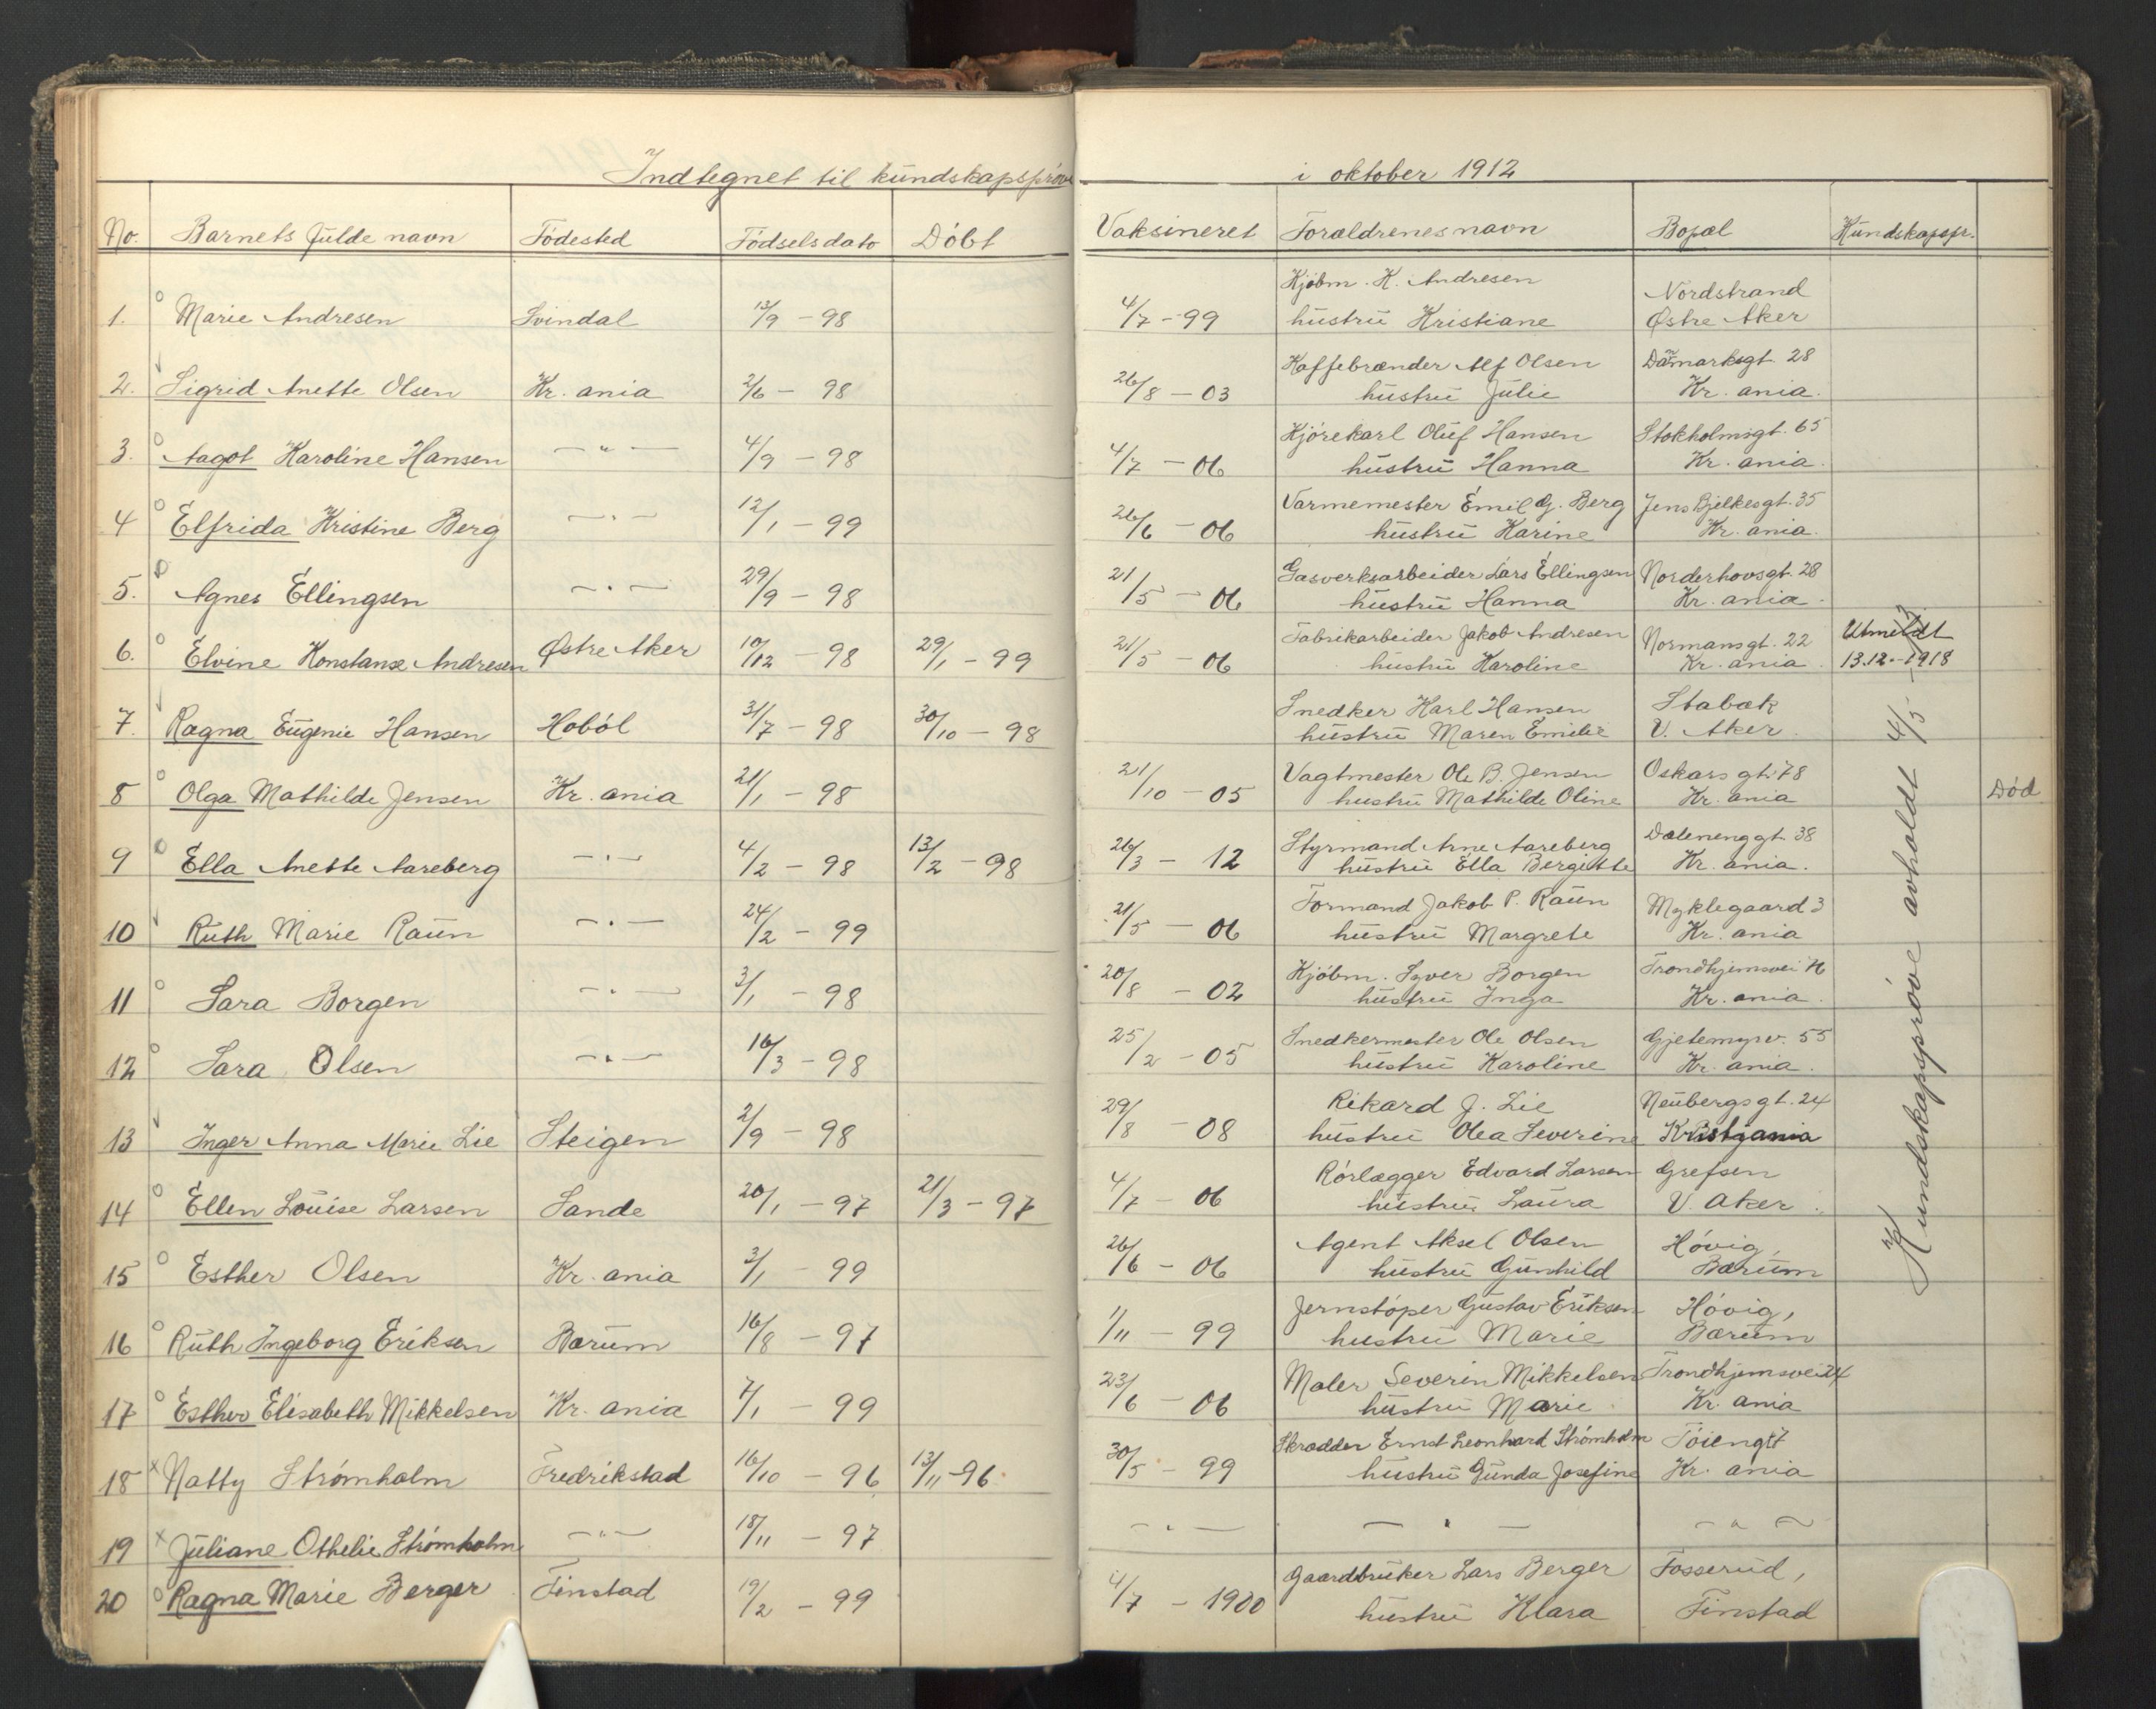 Indtegnet til kundskapsprøve i oktober 1912
No. Barnets fulde navn Födested Födselsdato Döbt Vaksineret Forældrenes navn Bopæl Kundskapspr.
1. Marie Andresen Svindal 13/9 - 98 4/7 - 99 Kjöbm. K. Andresen Nordstrand
hustru Kristiane Østre Aker
2. Sigrid Anette Olsen Kr. ania 2/6 - 98 26/8 - 03 Kaffebrænder Alf Olsen Danmarksgt. 28
hustru Julie Kr. ania.
3. Aagot Karoline Hansen - " - 4/9 - 98 4/7 - 06 Kjörekarl Oluf Hansen Stokholmsgt. 65
hustru Hanna Kr. ania.
4 Elfrida Kristine Berg - " - 12/1 - 99 26/6 - 06 Varmemester Emil G. Berg Jens Bjelkesgt. 35
hustru Karine Kr. ania.
5. Agnes Ellingsen - " - 29/9 - 98 21/5 - 06 Gasverksarbeider Lars Ellingsen Norderhovsgt. 28
hustru Hanna Kr. ania.
6. Elvine Konstanse Andresen Østre Aker 10/12 - 98 29/1 - 99 21/5 - 06 Fabrikarbeider Jakob Andresen Normansgt. 22 Utmeldt
hustru Karoline Kr. ania 13.12.-1918
7. Ragna Eugenie Hansen Haböl 31/7 - 98 30/10 - 98 Snedker Karl Hansen Stabæk
hustru Maren Emilie V. Aker.
8 Olga Mathilde Jensen Kr. ania 21/1 - 98 21/10 - 05 Vagtmester Ole B. Jensen Oskars gt. 78 Död
hustru Mathilde Oline Kr. ania
9 Ella Anette Aareberg - " - 4/2 - 98 13/2 - 98 26/3 - 12 Styrmand Arne Aareberg Dælenenggt. 38
hustru Ella Bergitte Kr. ania.
10 Ruth Marie Raun - " - 24/2 - 99 21/5 - 06 Formand Jakob P. Raun Myklegaard 3
hustru Margrete Kr. ania
11 Sara Borgen - " - 3/1 - 98 20/8 - 02 Kjöbm. Syver Borgen Trondhjemsvei
hustru Inga Kr. ania.
12 Sara Olsen - " - 16/3 - 98 25/2 - 05 Snedkermester Ole Olsen Gjetemyrv. 55
hustru Karoline Kr. ania.
13 Inger Anna Marie Lie Steigen 2/9 - 98 29/8 - 08 Rikard J. Lie Neubergsgt. 24
hustru Olea Severine Kristjania
14 Ellen Louise Larsen Sande 20/1 - 97 21/3 - 97 4/7 - 06 Rörlægger Edvard Larsen Grefsen
hustru Laura V. Aker.
15 Esther Olsen Kr. ania 3/1 - 99 26/6 - 06 Agent Aksel Olsen Hövig,
hustru Gunhild Bærum
16 Ruth Ingeborg Eriksen Bærum 16/8 - 97 1/11 - 99 Jernstöper Gustav Eriksen Hövig,
hustru Marie Bærum
17 Esther Elisabeth Mikkelsen Kr. ania 7/1 - 99 23/6 - 06 Maler Severin Mikkelsen Trondhjemsvei 24
hustru Marie Kr. ania
18 Natty Strömholm Fredrikstad 16/10 - 96 13/11 - 96 30/5 - 99 Skrædder Ernst Leonhard Strömholm Töiengt 7
hustru Gunda Josefine Kr. ania
19 Juliane Othelie Strömholm - " - 18/11 - 97 - " - - " - - " -
20 Ragna Marie Berger Finstad 19/2 - 99 4/7 - 1900 Gaardbruker Lars Berger Fosserud,
hustru Klara Finstad
Kundskapsprøve avholdt 4/5 - 13.